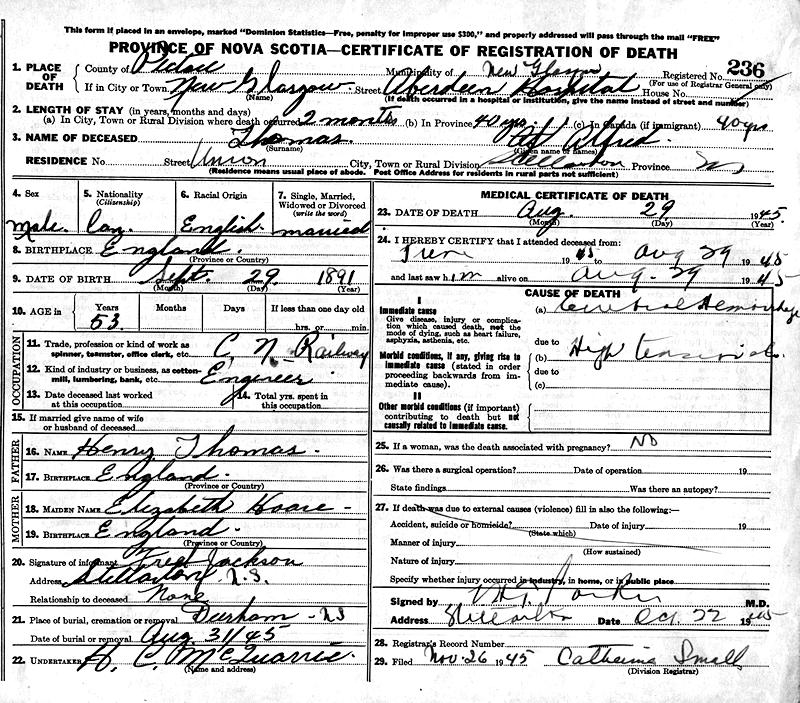 This form if placed in an envelope, marked "Dominion Statistics—Free, penalty for improper use $300," and properly addressed will pass through the mail "FREE"
PROVINCE OF NOVA SCOTIA—CERTIFICATE OF REGISTRATION OF DEATH
1. PLACE OF DEATH County of Pictou Municipality of New Glasgow Registered No. 236
(For use of Registrar General only)
If in City or Town New Glasgow Street Aberdeen Hospital House No.
(Name) (If death occurred in a hospital or institution, give the name instead of street and number)
2. LENGTH OF STAY (in years, months and days)
(a) In City, Town or Rural Division where death occurred 2 months (b) In Province 40 yrs. (c) In Canada (if immigrant) 40 yrs
3. NAME OF DECEASED Thomas Alfred
(Surname) (Given name or names)
RESIDENCE No. Street Union City, Town or Rural Division Stellarton Province
(Residence means usual place of abode. Post Office Address for residents in rural parts not sufficient)
4. Sex
Male.
5. Nationality
(Citizenship)
Can.
6. Racial Origin
English.
7. Single, Married, Widowed or Divorced
(write the word)
married
8. BIRTHPLACE England.
(Province or Country)
9. DATE OF BIRTH Sept. 29. 1891
(Month) (Day) (Year)
10. AGE in Years Months Days If less than one day old
53 hrs. or min.
OCCUPATION
11. Trade, profession or kind of work as spinner, teamster, office clerk, etc. C. N. Railway
12. Kind of industry or business, as cotton-mill, lumbering, bank, etc. Engineer
13. Date deceased last worked at this occupation
14. Total yrs. spent in this occupation
15. If married give name of wife or husband of deceased
FATHER
16. NAME Henry Thomas.
17. BIRTHPLACE England.
(Province or Country)
MOTHER
18. MAIDEN NAME Elizabeth Hoare -
19. BIRTHPLACE England.
(Province or Country)
20. Signature of informant Fred Jackson
Address Stellarton, N.S.
Relationship to deceased None
21. Place of burial, cremation or removal Durham - NS
Date of burial or removal Aug 31/45
22. UNDERTAKER H. C. McQuarrie.
(Name and address)
MEDICAL CERTIFICATE OF DEATH
23. DATE OF DEATH Aug. 29 1945
(Month) (Day) (Year)
24. I HEREBY CERTIFY that I attended deceased from:
June 1945 to Aug 29 1945
and last saw him alive on Aug. 29 1945
CAUSE OF DEATH
I
Immediate cause
Give disease, injury or complication which caused death, not the mode of dying, such as heart failure, asphyxia, asthenia, etc.
(a) Cerebral Hemorrhage
due to
Morbid conditions, if any, giving rise to immediate cause (stated in order proceeding backwards from immediate cause).
(b) High tension
due to
(c)
II
Other morbid conditions (if important) contributing to death but not causally related to immediate cause.
25. If a woman, was the death associated with pregnancy? No
26. Was there a surgical operation? Date of operation 19
State findings Was there an autopsy?
27. If death was due to external causes (violence) fill in also the following:—
Accident, suicide or homicide? Date of injury 19
(State which)
Manner of injury
(How sustained)
Nature of injury
Specify whether injury occurred in industry, in home, or in public place
Signed by Parker M.D.
Address Stellarton Date Oct. 22 1945
28. Registrar's Record Number
29. Filed Nov. 26 1945 Catherina Small
(Division Registrar)